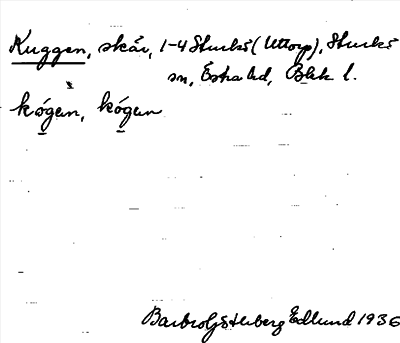 Kuggen, skär, 1-4 Sturkö (Uttorp), Sturkö
sn, Östra hd, Blek l.
kógen, kógen
Edlund 1936